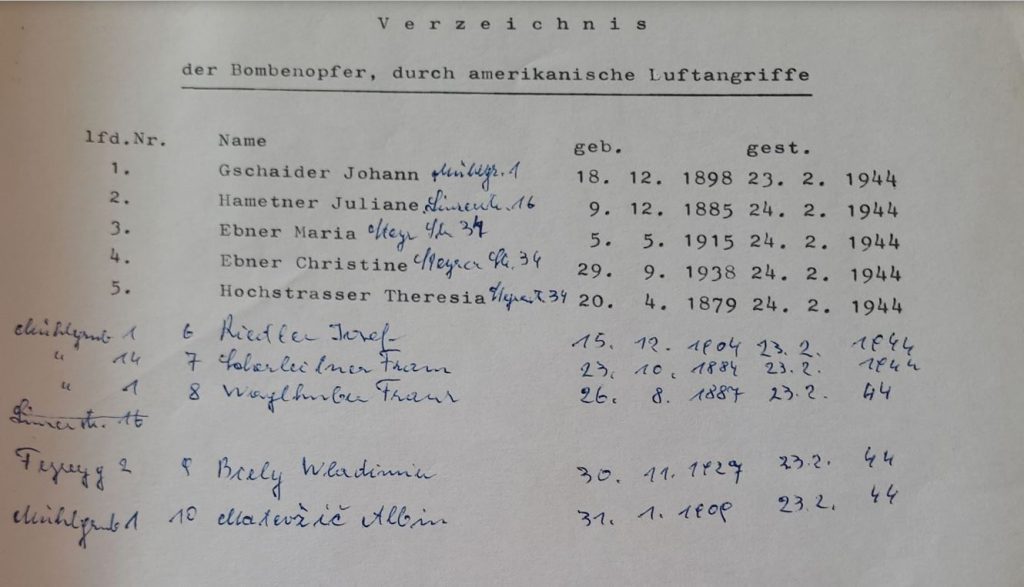 Verzeichnis
der Bombenopfer, durch amerikanische Luftangriffe
lfd.Nr. Name geb. gest.
1. Gschaider Johann Mühlgr. 1 18. 12. 1898 23. 2. 1944
2. Hametner Juliane 16 9. 12. 1885 24. 2. 1944
3. Ebner Maria 34 5. 5. 1915 24. 2. 1944
4. Ebner Christine 34 29. 9. 1938 24. 2. 1944
5. Hochstrasser Theresia 34 20. 4. 1879 24. 2. 1944
Mühlgrub 1 6 Riedler Josef 15. 12. 1904 23. 2. 1944
" 14 7 Franz 23. 10. 1884 23. 2. 1944
" 1 8 Franz 26. 8. 1887 23. 2. 44
16
2 9 Wladimir 30. 11. 1927 23. 2. 44
Mühlgrub 1 10 Matevžič Albin 31. 1. 1909 23. 2. 44